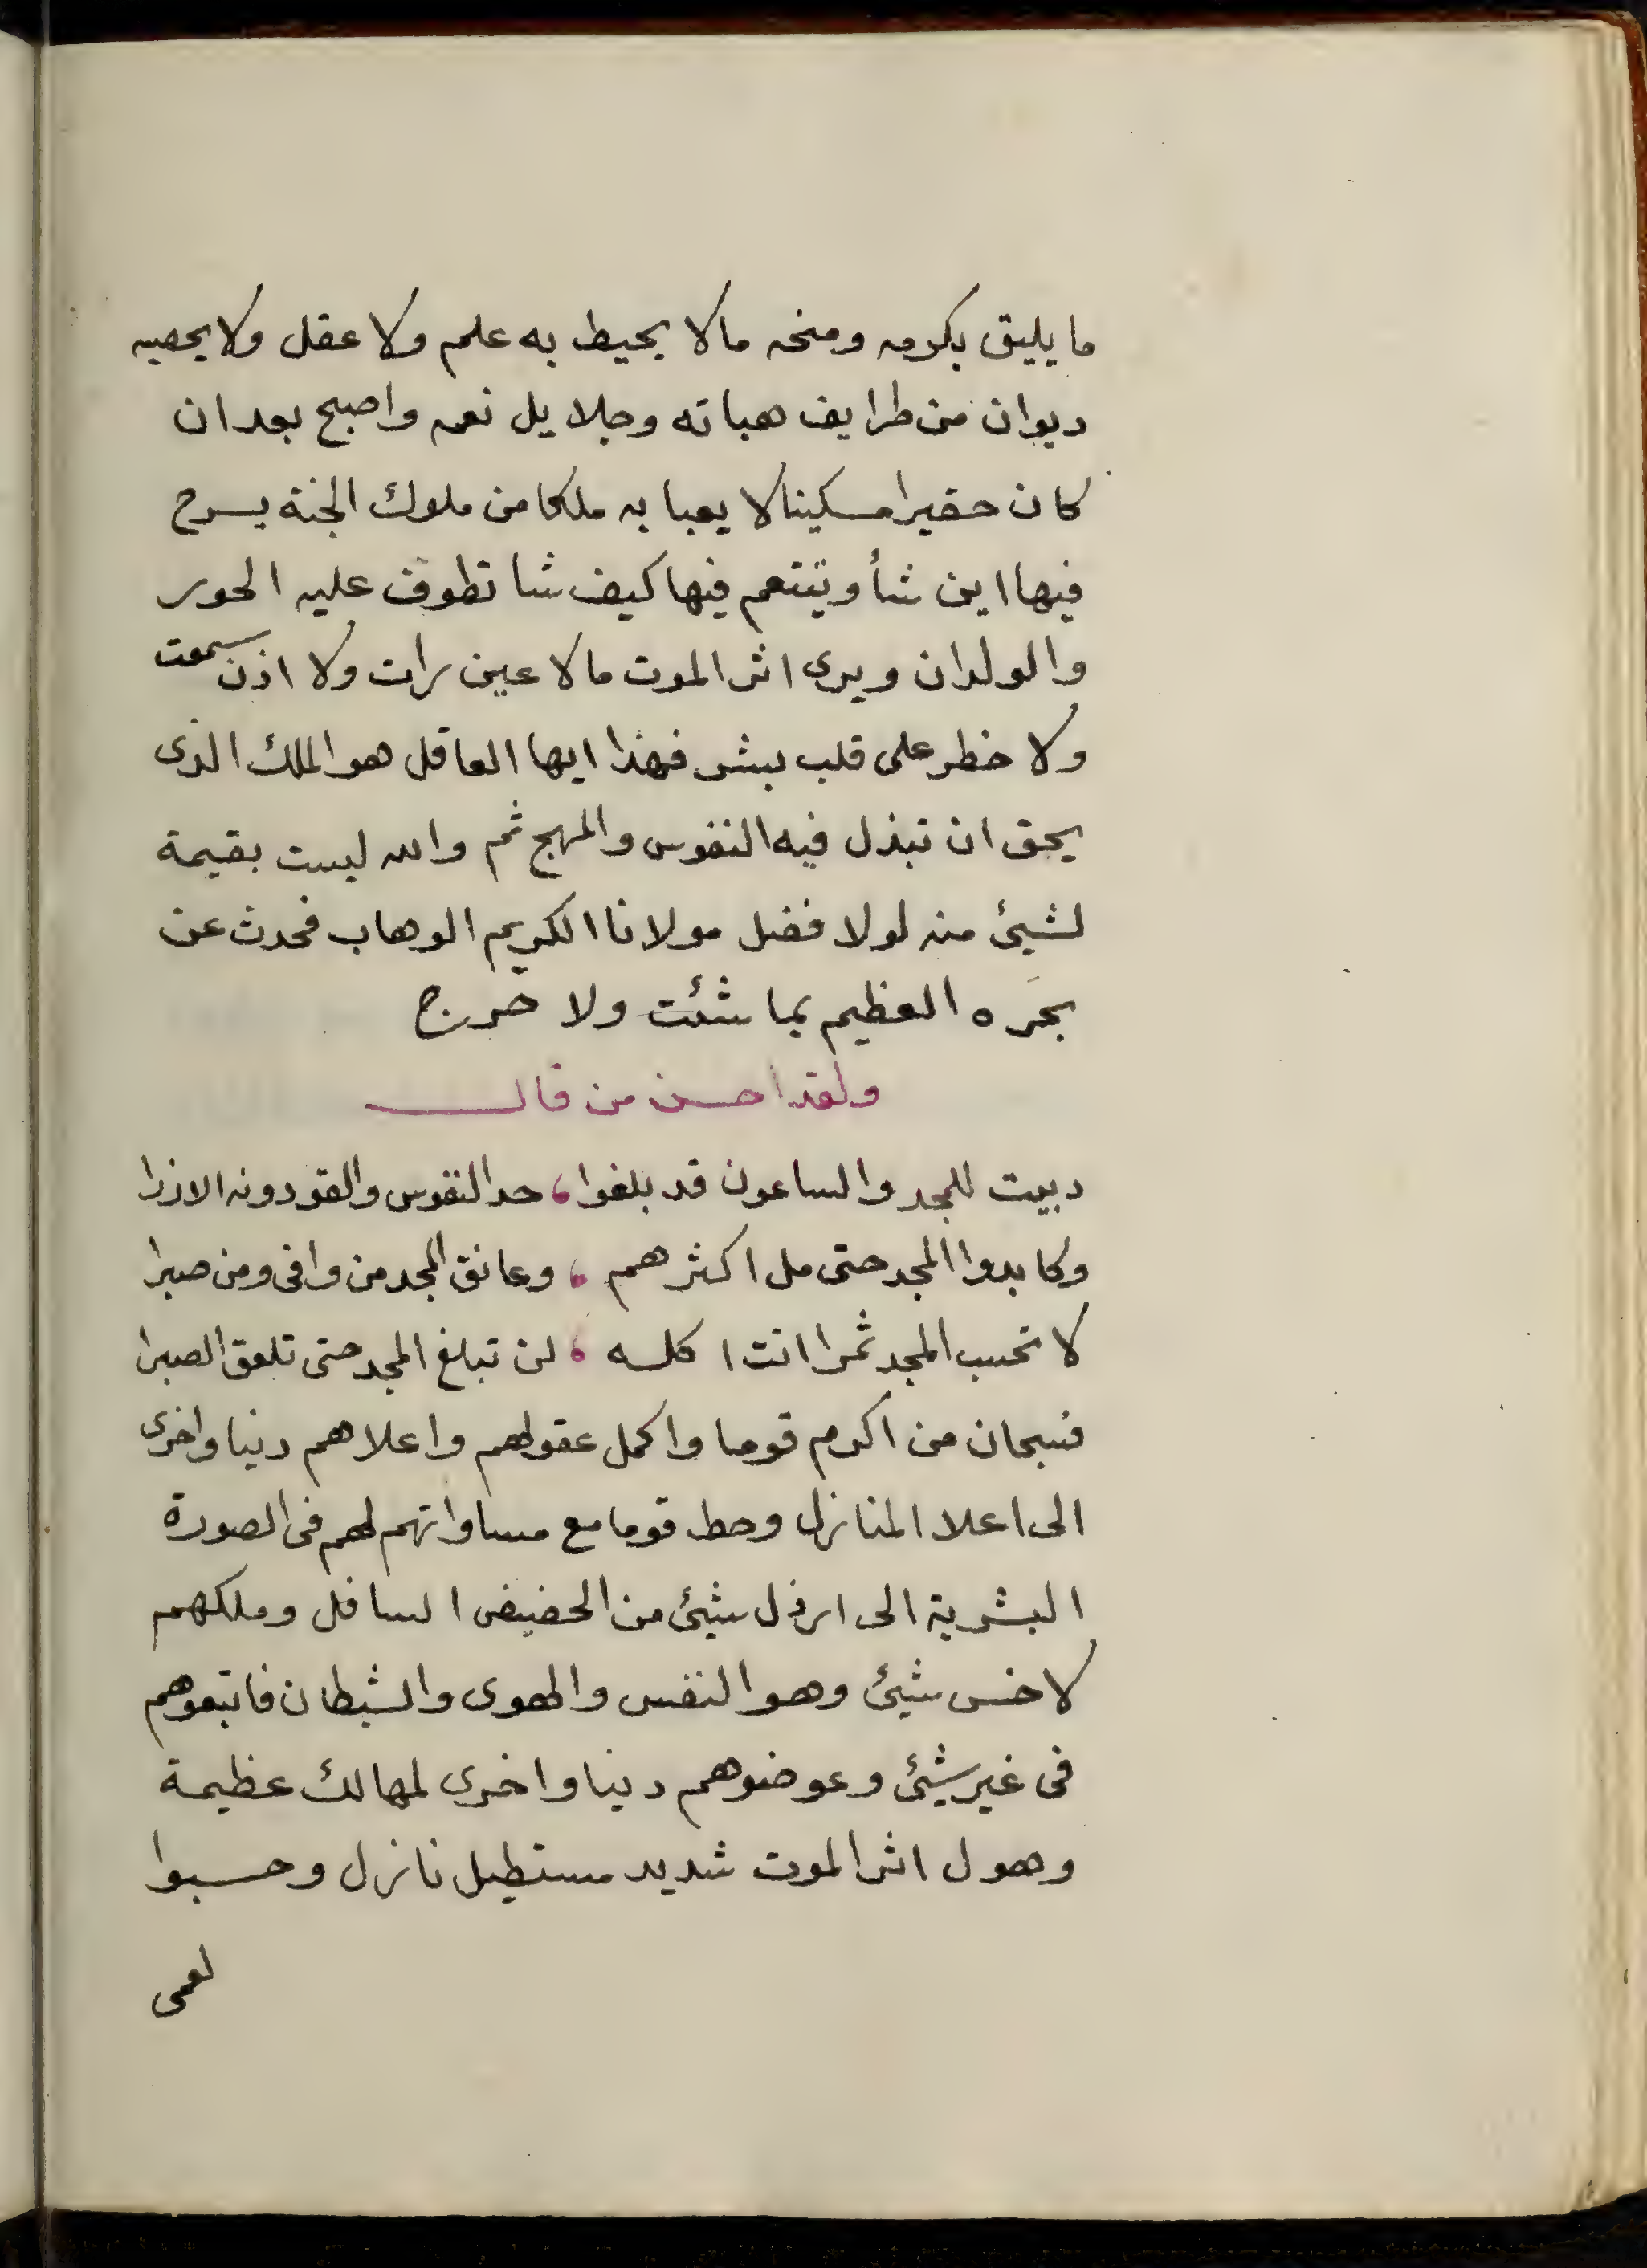 ما يليق بكرمه ومنحه مالا يحيط به علم ولا عقل ولا يحصيه
ديوان من طرايف هباته وجلايل نعمه واصبح بعد ان
كان حقيرا مسكينا لا يعبا به ملكا من ملوك الجنة يسرح
فيها اين شأ ويتنعم فيها كيف شا تطوف عليه الحور
والولدان ويرى اثر الموت مالا عين رات ولا اذن سمعت
ولا خطر على قلب بشر فهذا ايها العاقل هو الملك الذى
يحق ان تبذل فيه النفوس والمهج ثم والله ليست بقيمة
لشيئ منه لولا فضل مولانا الكريم الوهاب فحدث عن
بحره العظيم بما شئت ولا حرج
ولقد احسن من قال
دبيت للمجد والساعون قد بلغوا، حد النفوس والقو دونه الازرا
وكابدوا المجد حتى مل اكثرهم، وعانق المجد من وافى ومن صبرا
لا تحسب المجد ثمرا انت اكله، لن تبلغ المجد حتى تلعق الصبرا
فسبحان من اكرم قوما واكمل عقولهم واعلاهم دنيا واخرى
الى اعلا المنازل وحط قوما مع مساواتهم لهم فى الصورة
البشرية الى ارذل شيئ من الحضيض السافل وملكهم
لاخس شيئ وهو النفس والهوى والشيطان فاتبعوهم
فى غير شيئ وعوضوهم دنيا واخرى لمهالك عظيمة
وهول اثر الموت شديد مستطيل نازل وحسبوا
لعمى